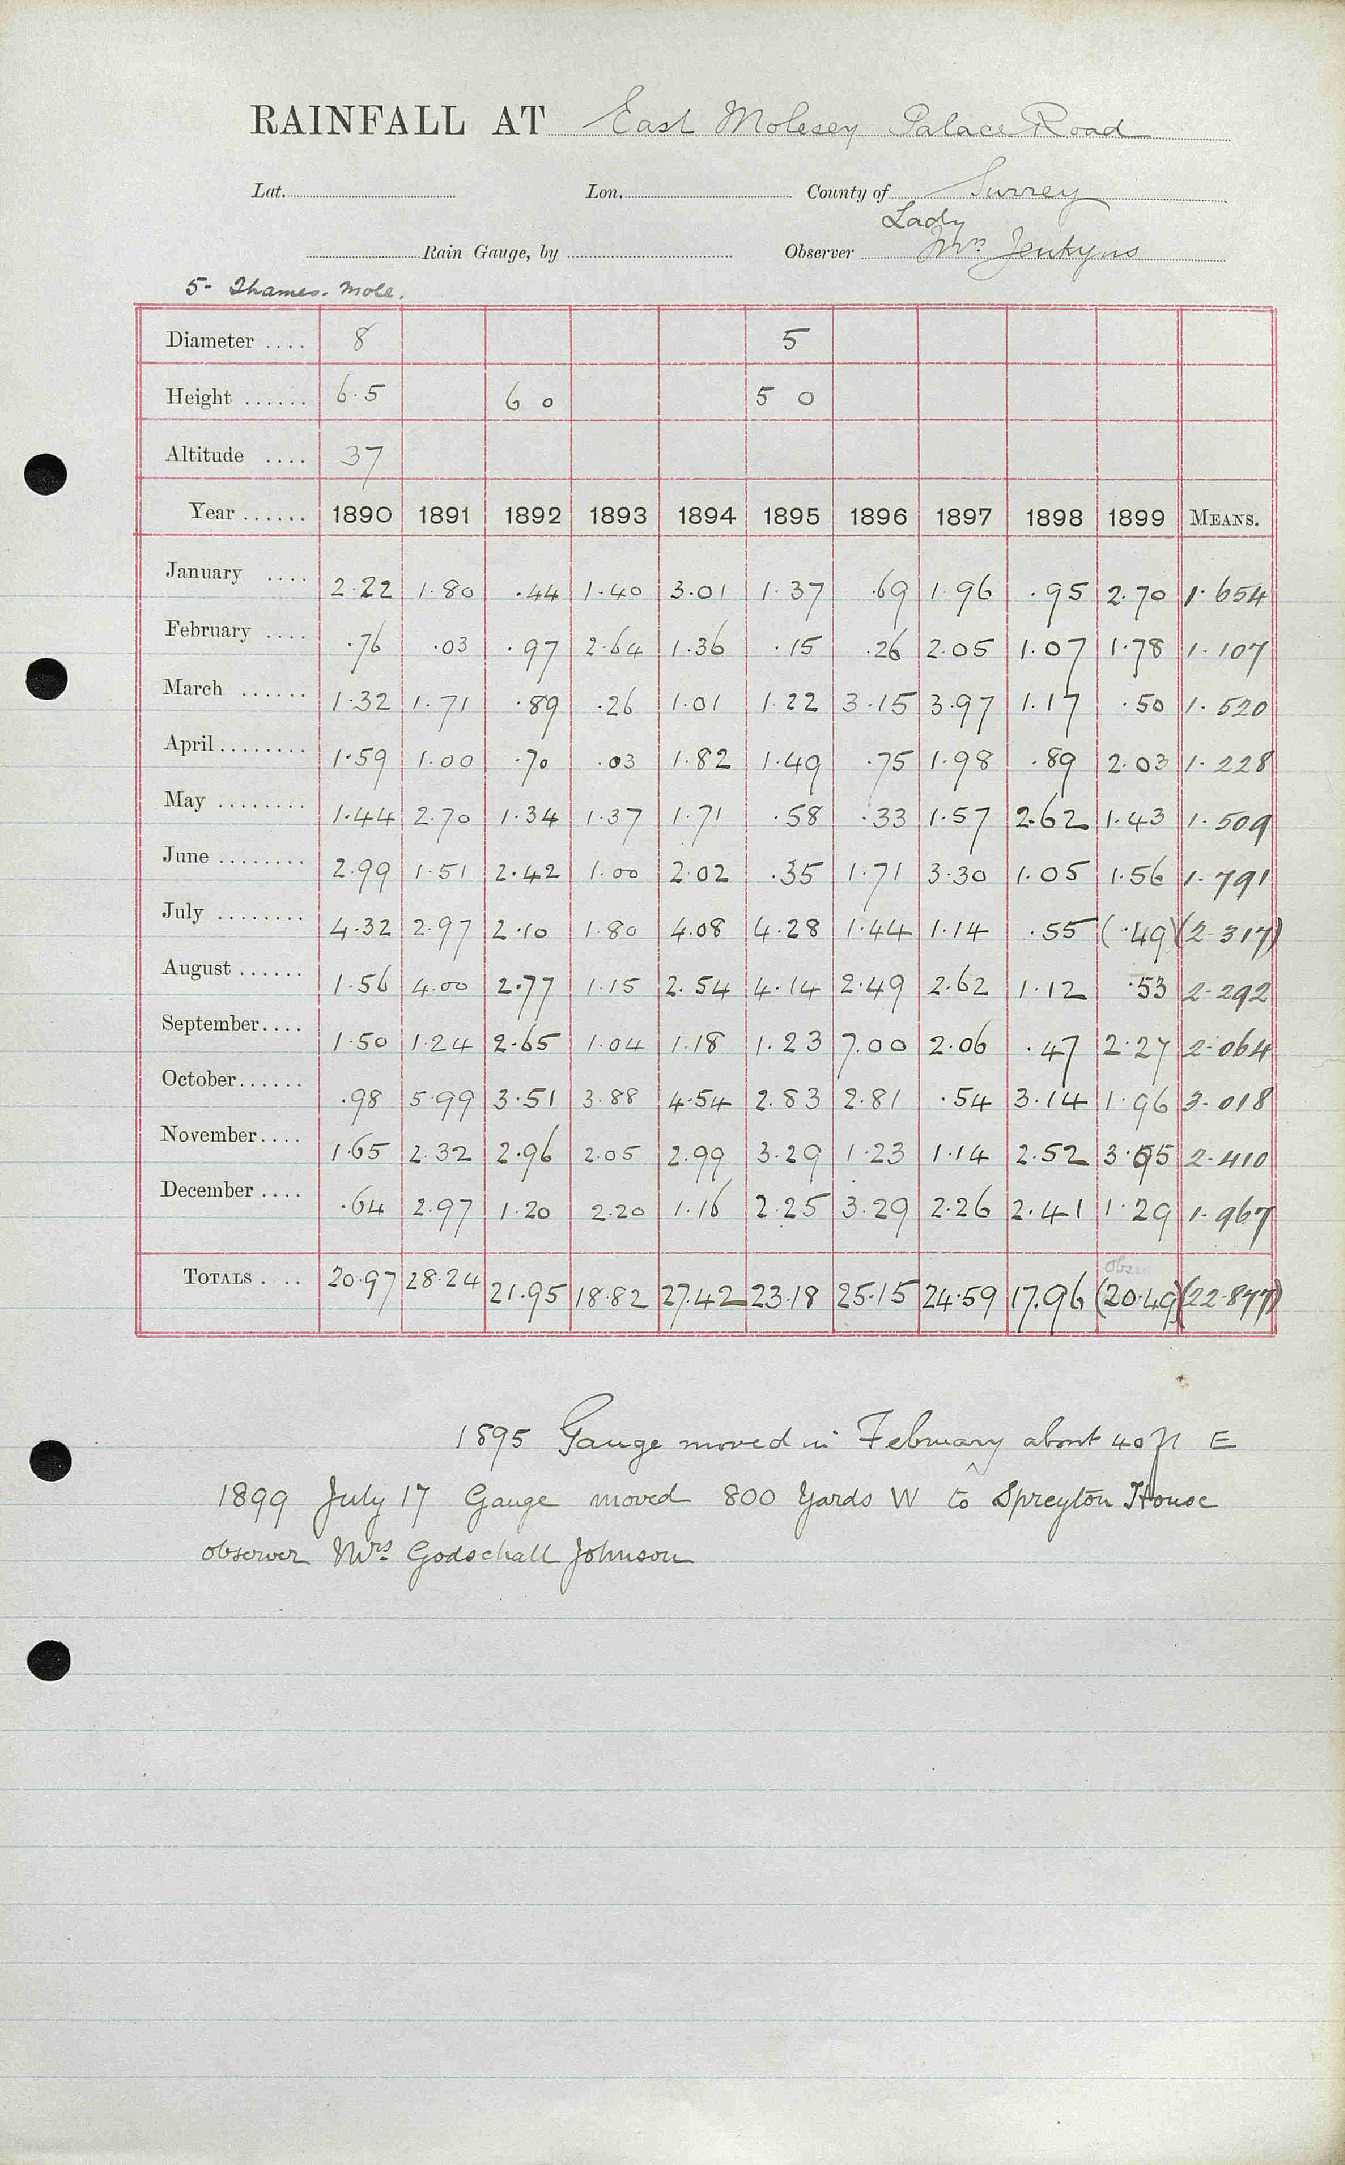 RAINFALL AT East Molesey Palace Road
Lat. Lon. County of Surrey
Lady
Rain Gauge, by Observer Mrs Jenkyns
5- Thames. Mole.
Diameter .... 8 5
Height ...... 6.5 6 0 5 0
Altitude .... 37
Year ...... 1890 1891 1892 1893 1894 1895 1896 1897 1898 1899 MEANS.
January .... 2.22 1.80 .44 1.40 3.01 1.37 .69 1.96 .95 2.70 1.654
February .... .76 .03 .97 2.64 1.36 .15 .26 2.05 1.07 1.78 1.107
March ...... 1.32 1.71 .89 .26 1.01 1.22 3.15 3.97 1.17 .50 1.520
April ........ 1.59 1.00 .70 .03 1.82 1.49 .75 1.98 .89 2.03 1.228
May ........ 1.44 2.70 1.34 1.37 1.71 .58 .33 1.57 2.62 1.43 1.509
June ........ 2.99 1.51 2.42 1.00 2.02 .35 1.71 3.30 1.05 1.56 1.791
July ........ 4.32 2.97 2.10 1.80 4.08 4.28 1.44 1.14 .55 (.49) (2.317)
August ...... 1.56 4.00 2.77 1.15 2.54 4.14 2.49 2.62 1.12 .53 2.292
September.... 1.50 1.24 2.65 1.04 1.18 1.23 7.00 2.06 .47 2.27 2.064
October...... .98 5.99 3.51 3.88 4.54 2.83 2.81 .54 3.14 1.96 3.018
November.... 1.65 2.32 2.96 2.05 2.99 3.29 1.23 1.14 2.52 3.95 2.410
December .... .64 2.97 1.20 2.20 1.16 2.25 3.29 2.26 2.41 1.29 1.967
TOTALS .... 20.97 28.24 21.95 18.82 27.42 23.18 25.15 24.59 17.96 (20.49) (22.877)
1895 Gauge moved in February about 40 ft E
1899 July 17 Gauge moved 800 yards W to Spreyton House
observer Mrs Godschall Johnson